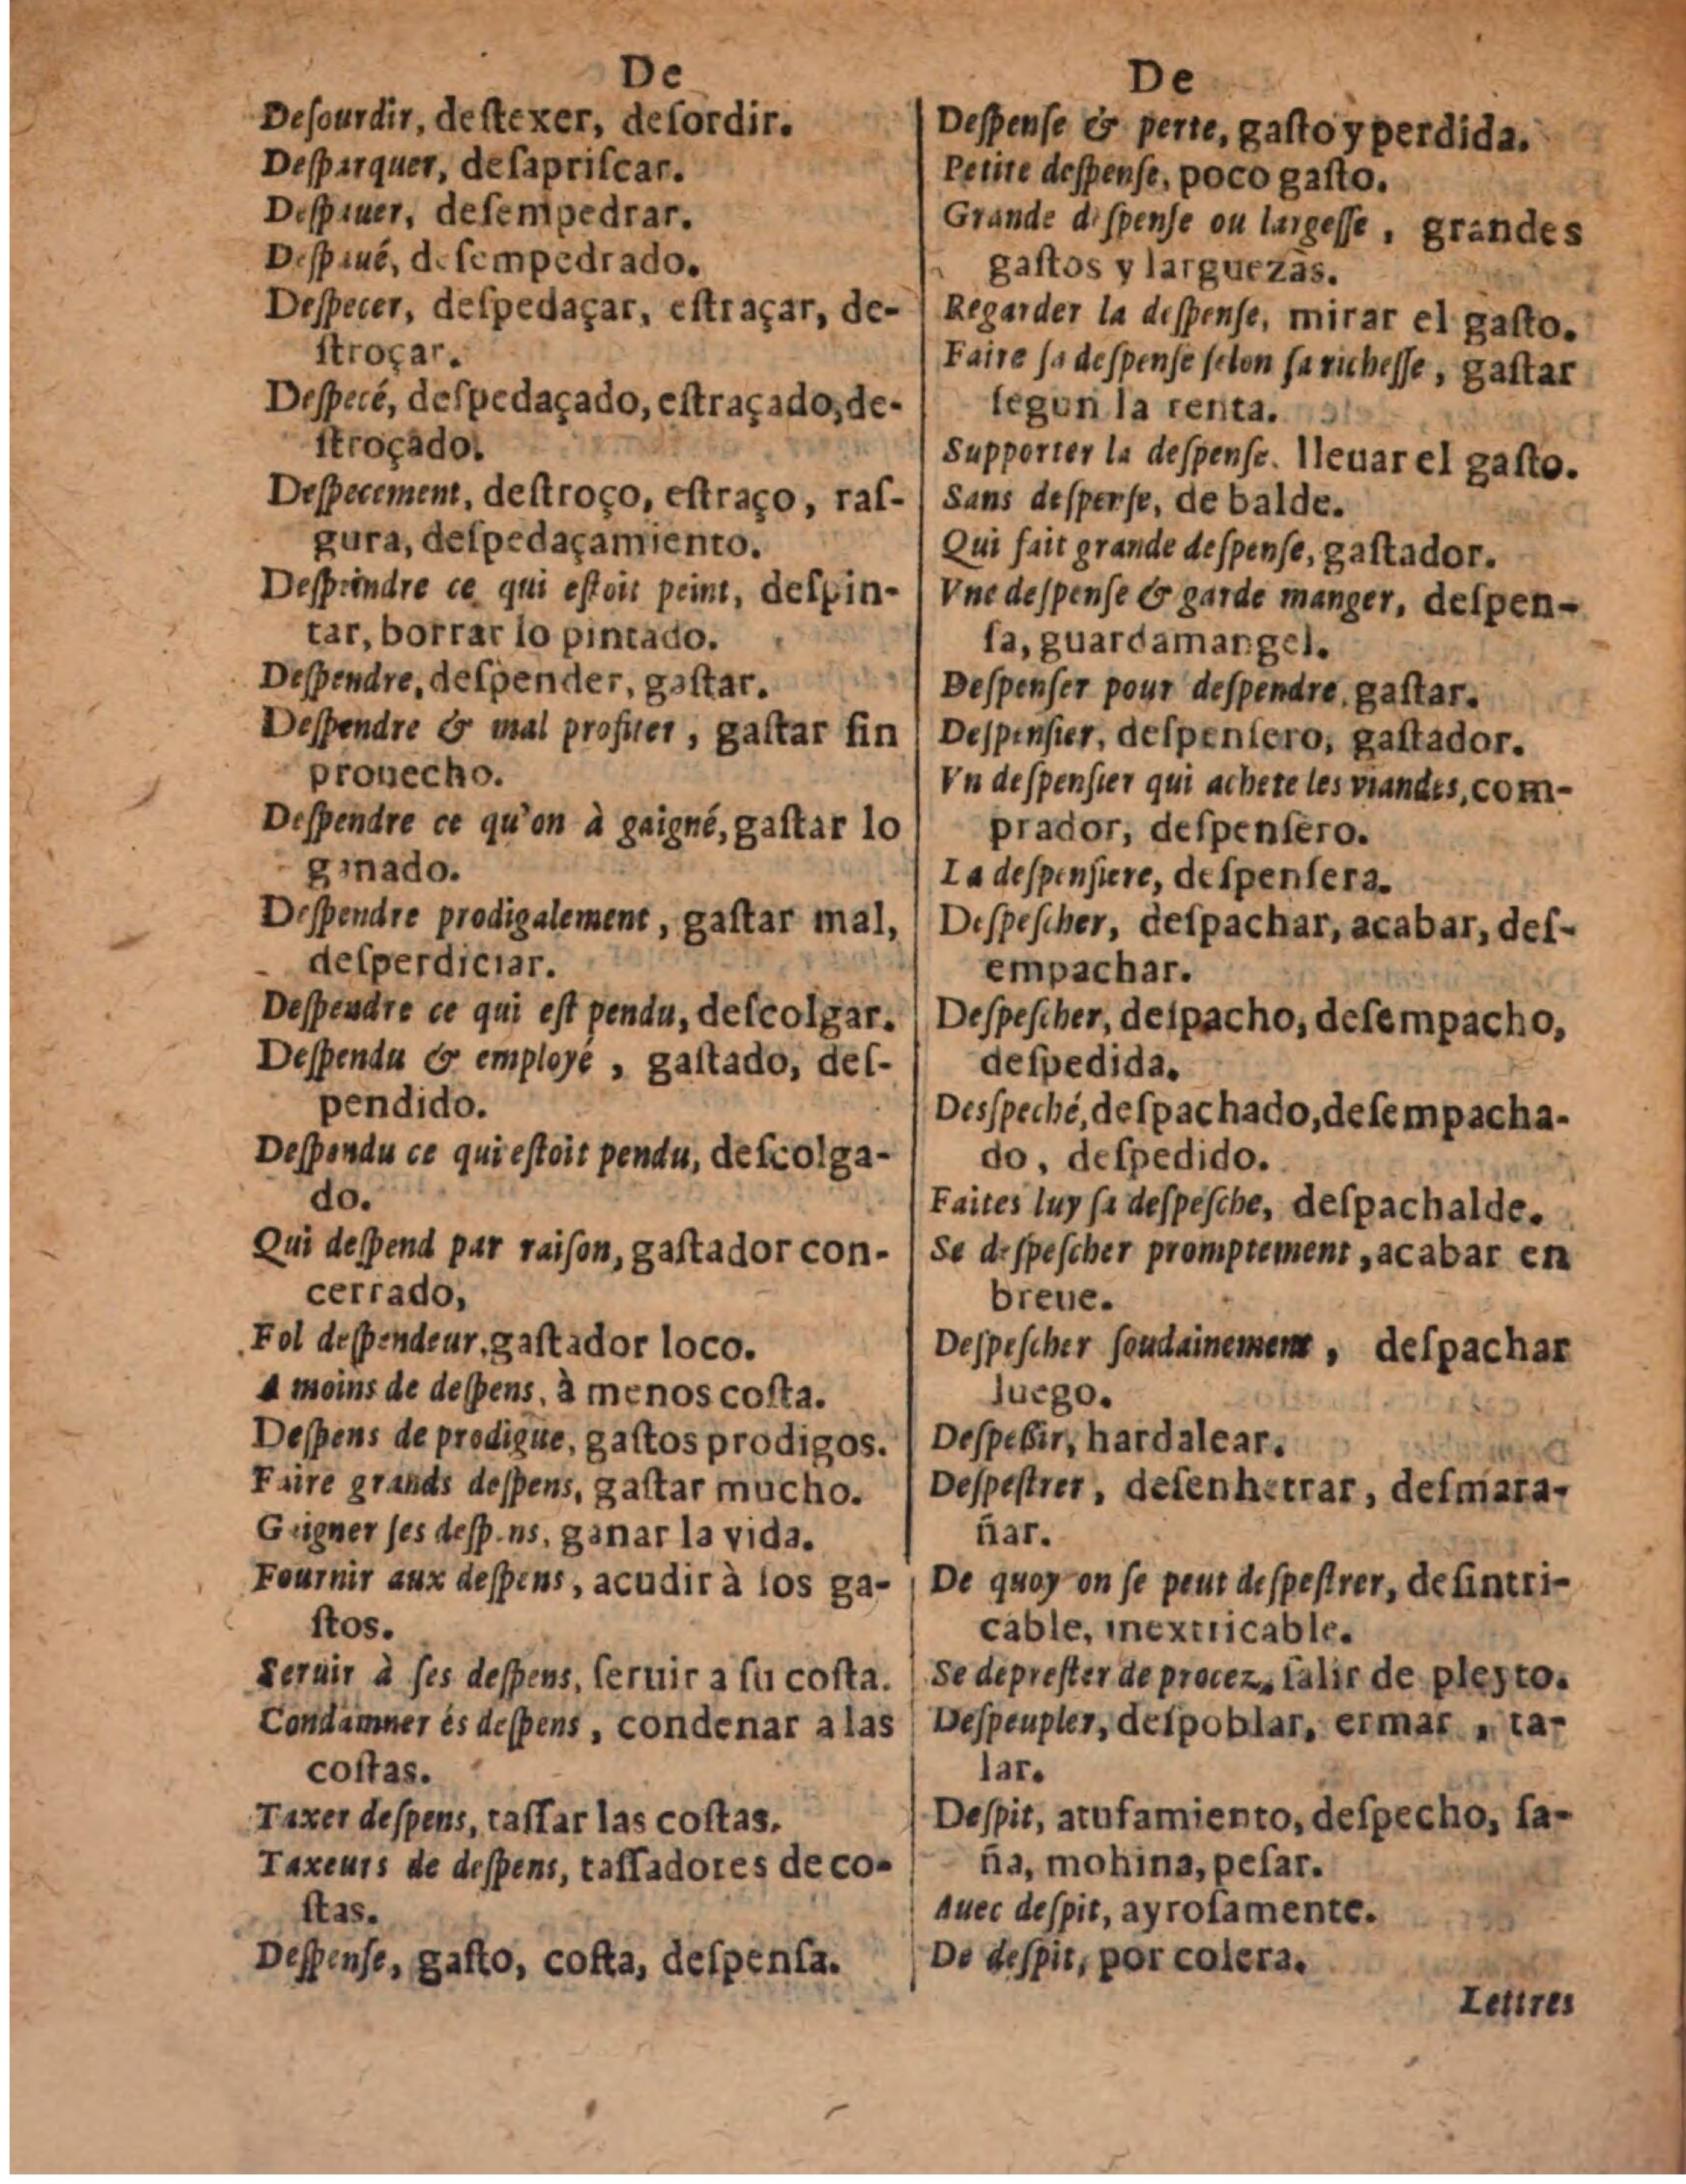 De
Deſourdir, deſtexer, deſordir.
Deſparquer, deſapriſcar.
Deſpauer, deſempedrar.
Deſpaué, deſempedrado.
Deſpecer, deſpedaçar, eſtraçar, de-
ſtroçar.
Deſpecé, deſpedaçado, eſtraçado, de-
ſtroçado.
Deſpecement, deſtroço, eſtraço, raſ-
gura, deſpedaçamiento.
Deſpeindre ce qui eſtoit peint, deſpin-
tar, borrar lo pintado.
Deſpendre, deſpender, gaſtar.
Deſpendre & mal profiter, gaſtar ſin
prouecho.
Deſpendre ce qu'on à gaigné, gaſtar lo
ganado.
Deſpendre prodigalement, gaſtar mal,
deſperdiciar.
Deſpendre ce qui eſt pendu, deſcolgar.
Deſpendu & employé, gaſtado, deſ-
pendido.
Deſpendu ce qui eſtoit pendu, deſcolga-
do.
Qui deſpend par raiſon, gaſtador con-
cerrado,
Fol deſpendeur, gaſtador loco.
A moins de deſpens, à menos coſta.
Deſpens de prodigue, gaſtos prodigos.
Faire grands deſpens, gaſtar mucho.
Gaigner ſes deſpens, ganar la vida.
Fournir aux deſpens, acudir à los ga-
ſtos.
Seruir à ſes deſpens, ſeruir a ſu coſta.
Condamner és deſpens, condenar a las
coſtas.
Taxer deſpens, taſſar las coſtas.
Taxeurs de deſpens, taſſadores de co-
ſtas.
Deſpenſe, gaſto, coſta, deſpenſa.
De
Deſpenſe & perte, gaſto y perdida.
Petite deſpenſe, poco gaſto.
Grande deſpenſe ou largeſſe, grandes
gaſtos y larguezas.
Regarder la deſpenſe, mirar el gaſto.
Faire ſa deſpenſe ſelon ſa richeſſe, gaſtar
ſegun la renta.
Supporter la deſpenſe. lleuar el gaſto.
Sans deſpenſe, de balde.
Qui fait grande deſpenſe, gaſtador.
Vne deſpenſe & garde manger, deſpen-
ſa, guardamangel.
Deſpenſer pour deſpendre, gaſtar.
Deſpenſier, deſpenſero, gaſtador.
Vn deſpenſier qui achete les viandes, com-
prador, deſpenſero.
La deſpenſiere, deſpenſera.
Deſpeſcher, deſpachar, acabar, deſ-
empachar.
Deſpeſcher, deſpacho, deſempacho,
deſpedida.
Desſpeché, deſpachado, deſempacha-
do, deſpedido.
Faites luy ſa deſpeſche, deſpachalde.
Se deſpeſcher promptement, acabar en
breue.
Deſpeſcher ſoudainement, deſpachar
luego.
Deſpeßir, hardalear.
Deſpeſtrer, deſenhetrar, deſmara-
ñar.
De quoy on ſe peut deſpeſtrer, deſintri-
cable, inextricable.
Se depreſter de procez, ſalir de pleyto.
Deſpeupler, deſpoblar, ermar, ta-
lar.
Deſpit, atufamiento, deſpecho, ſa-
ña, mohina, peſar.
Auec deſpit, ayroſamente.
De deſpit, por colera.
Lettres